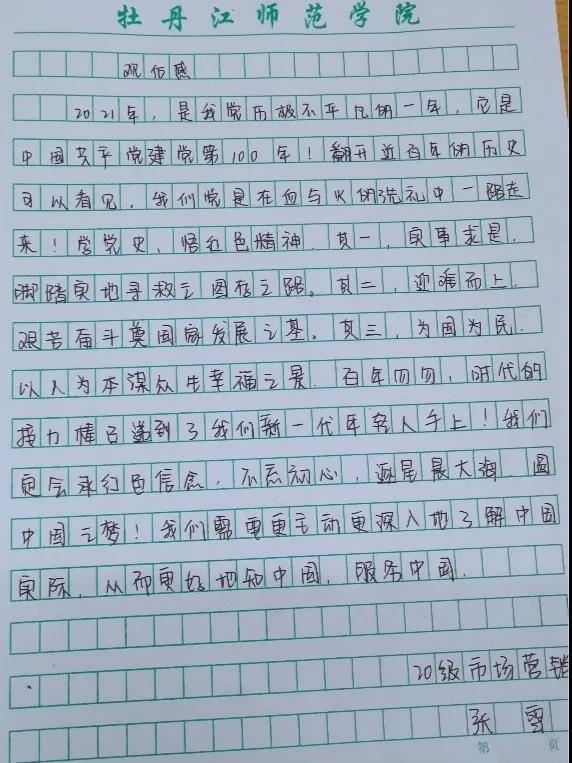 牡丹江师范学院
观后感
2021年，是我党历极不平凡的一年，它是
中国共产党建党第100年！翻开近百年的历史
可以看见，我们党是在血与火的洗礼中一路走
来！学党史，悟红色精神．其一，实事求是．
脚踏实地寻救之图存之路。其二，迎难而上．
艰苦奋斗奠国家发展之基。其三，为国为民．
以人为本谋众生幸福之景．百年匆匆，时代的
接力棒已递到了我们新一代年轻人手上！我们
定会承红色信念，不忘初心，逐星晨大海．圆
中国之梦！我们需要更主动更深入地了解中国
实际，从而更好地知中国，服务中国．
20级市场营销
张雪
第 页